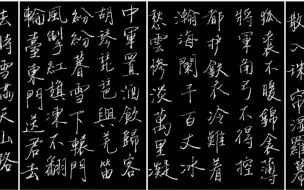 散入珠簾濕羅幕
狐裘不暖錦衾薄
將軍角弓不得控
都護鐵衣冷難着
瀚海闌干百丈冰
愁雲慘淡萬里凝
中軍置酒飲歸客
胡琴琵琶與羌笛
紛紛暮雪下轅門
風掣紅旗凍不翻
輪臺東門送君去
去時雪滿天山路